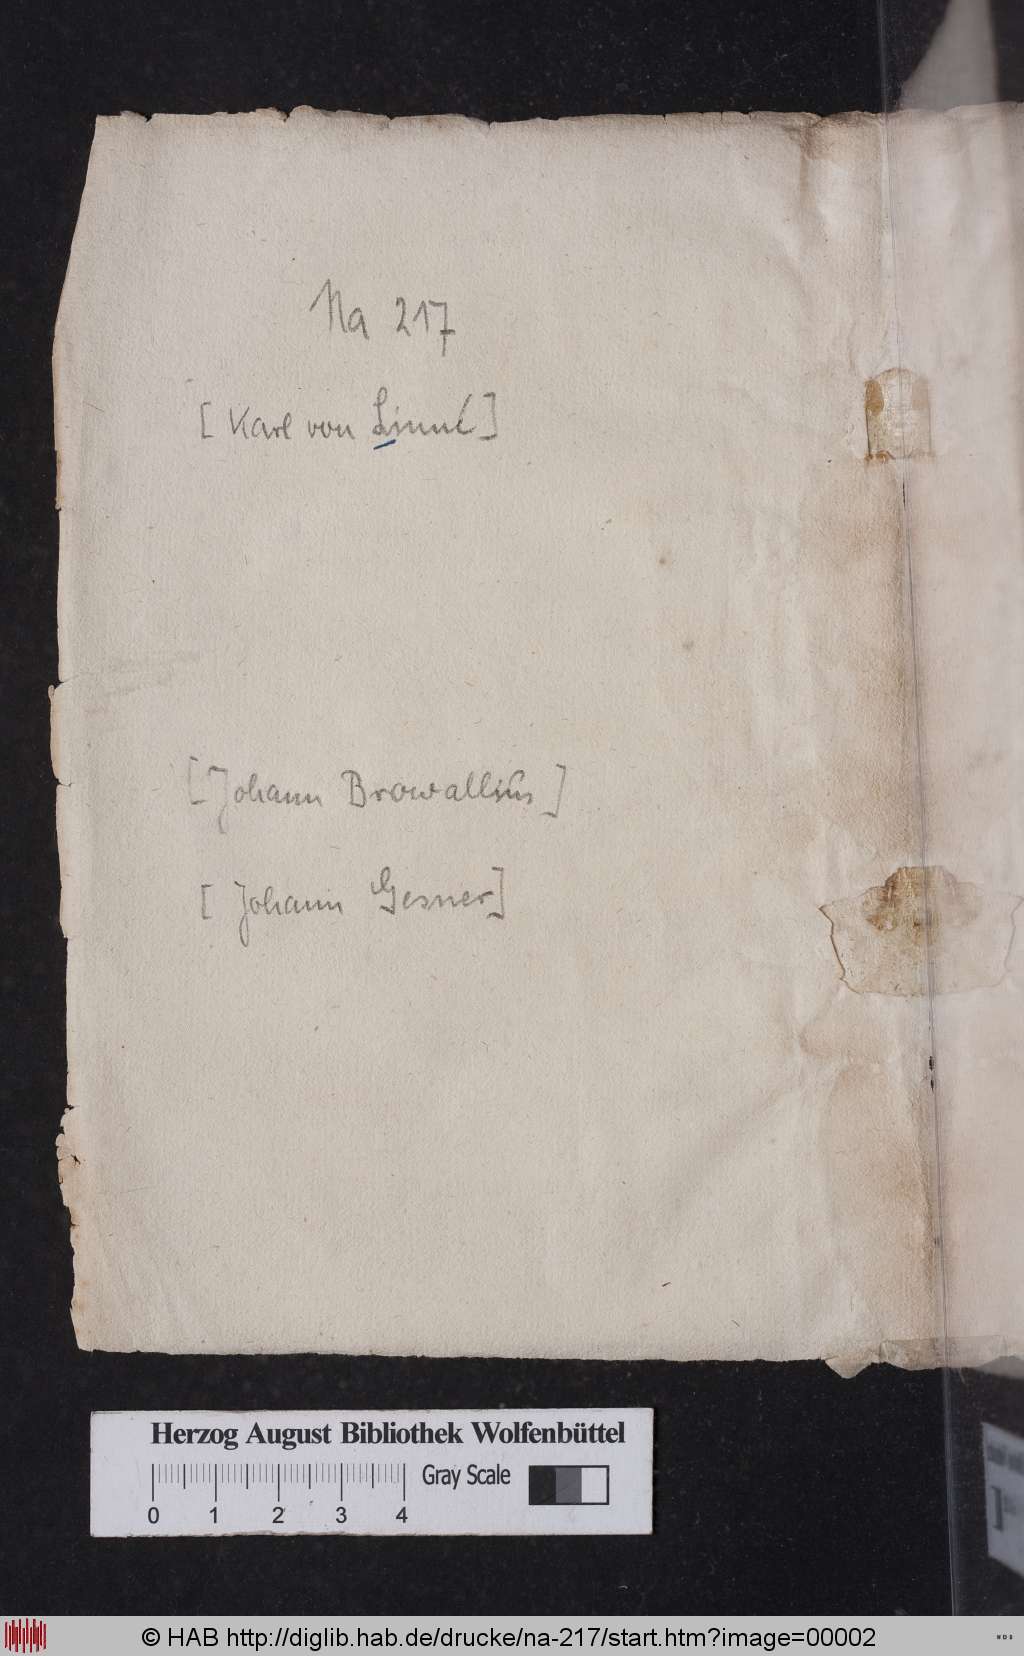 Na 217
[Karl von Linné]
[Johann Browallius]
[Johann Gesner]
Herzog August Bibliothek Wolfenbüttel
Gray Scale
0 1 2 3 4
© HAB http://diglib.hab.de/drucke/na-217/start.htm?image=00002